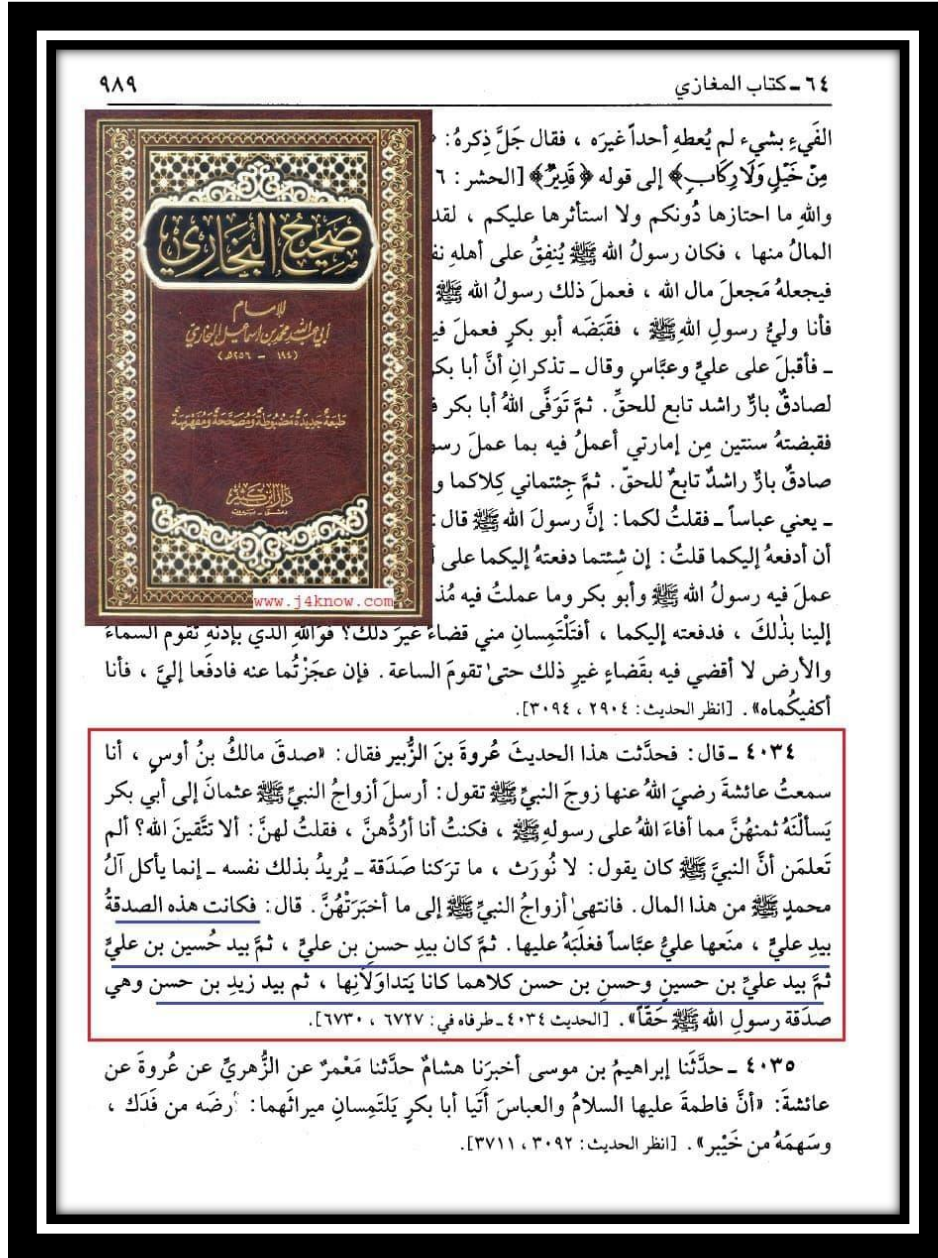 ٦٤ ـ كتاب المغازي
٩٨٩
الفَيءِ بشيء لم يُعطهِ أحداً غيرَه ، فقال جَلَّ ذِكرهُ :
مِنْ خَيْلٍ وَلَا رِكَابٍ﴾ إلى قوله ﴿قَدِيرٌ﴾ [الحشر : ٦
واللهِ ما احتازها دُونكم ولا استأثرها عليكم ، لقد
المالُ منها ، فكان رسولُ الله ﷺ يُنفِقُ على أهلهِ
فيجعلهُ مَجعلَ مال الله ، فعملَ ذلك رسولُ الله ﷺ
فأنا وليُّ رسولِ اللهِ ﷺ ، فقَبَضَه أبو بكرٍ فعملَ
ـ فأقبلَ على عليٍّ وعبَّاسٍ وقال ـ تذكرانِ أنَّ أبا
لصادقٌ بارٌّ راشد تابع للحقِّ . ثمَّ تَوَفَّى اللهُ أبا بكر
فقبضتهُ سنتين مِن إمارتي أعملُ فيه بما عملَ
صادقٌ بارٌّ راشدٌ تابعٌ للحقّ . ثمَّ جِئتماني كِلاكما
ـ يعني عباساً ـ فقلتُ لكما : إنَّ رسولَ الله ﷺ قال :
أن أدفعهُ إليكما قلتُ : إن شِئتما دفعتهُ إليكما على
عملَ فيه رسولُ الله ﷺ وأبو بكر وما عملتُ فيه
إلينا بذٰلكَ ، فدفعته إليكما ، أفتَلْتَمِسانِ مني قضاءً غيرَ ذلك؟ فوَاللهِ الذي بإذنهِ تقوم السماءُ
والأرض لا أقضي فيه بقَضاءٍ غيرِ ذلك حتىٰ تقومَ الساعة . فإن عجَزْتُما عنه فادفَعا إليَّ ، فأنا
أكفيكُماه» . [انظر الحديث : ٢٩٠٤ ، ٣٠٩٤].
٤٠٣٤ ـ قال : فحدَّثت هذا الحديثَ عُروةَ بنَ الزُّبير فقال : «صدقَ مالكُ بنُ أوسٍ ، أنا
سمعتُ عائشةَ رضيَ اللهُ عنها زوجَ النبيِّ ﷺ تقول : أرسلَ أزواجُ النبيِّ ﷺ عثمانَ إلى أبي بكر
يَسألْنَهُ ثمنهُنَّ مما أفاءَ اللهُ على رسولهِ ﷺ ، فكنتُ أنا أرُدُّهنَّ ، فقلتُ لهنَّ : ألا تتَّقينَ الله؟ ألم
تَعلمَن أنَّ النبيَّ ﷺ كان يقول : لا نُورَث ، ما ترَكنا صَدَقة ـ يُريدُ بذلك نفسه ـ إنما يأكل آلُ
محمدٍ ﷺ من هذا المال . فانتهىٰ أزواجُ النبيِّ ﷺ إلى ما أخبَرَتْهُنَّ . قال : فكانت هذه الصدقةُ
بيدِ عليٍّ ، منَعها عليٌّ عبَّاساً فغلَبَهُ عليها . ثمَّ كان بيدِ حسنِ بن عليٍّ ، ثمَّ بيد حُسين بن عليٍّ
ثمَّ بيد عليِّ بن حسينٍ وحسنِ بن حسن كلاهما كانا يَتداوَلَانِها ، ثم بيد زيدِ بن حسن وهي
صدَقة رسولِ الله ﷺ حَقّاً» . [الحديث ٤٠٣٤ ـ طرفاه في : ٦٧٢٧ ، ٦٧٣٠].
٤٠٣٥ ـ حدَّثَنا إبراهيمُ بن موسى أخبرَنا هشامٌ حدَّثنا مَعْمرٌ عن الزُّهريِّ عن عُروةَ عن
عائشةَ : «أنَّ فاطمةَ عليها السلامُ والعباسَ أتَيا أبا بكرٍ يَلتَمِسانِ ميراثَهما : أرضَه من فَدَك ،
وسَهمَهُ من خَيْبر» . [انظر الحديث : ٣٠٩٢ ، ٣٧١١].
صحيح البخاري
للإمام
أبي عبد الله محمد بن إسماعيل البخاري
(١٩٤ - ٢٥٦هـ)
طبعة جديدة مضبوطة ومصححة ومفهرسة
دار ابن كثير
دمشق - بيروت
www.j4know.com